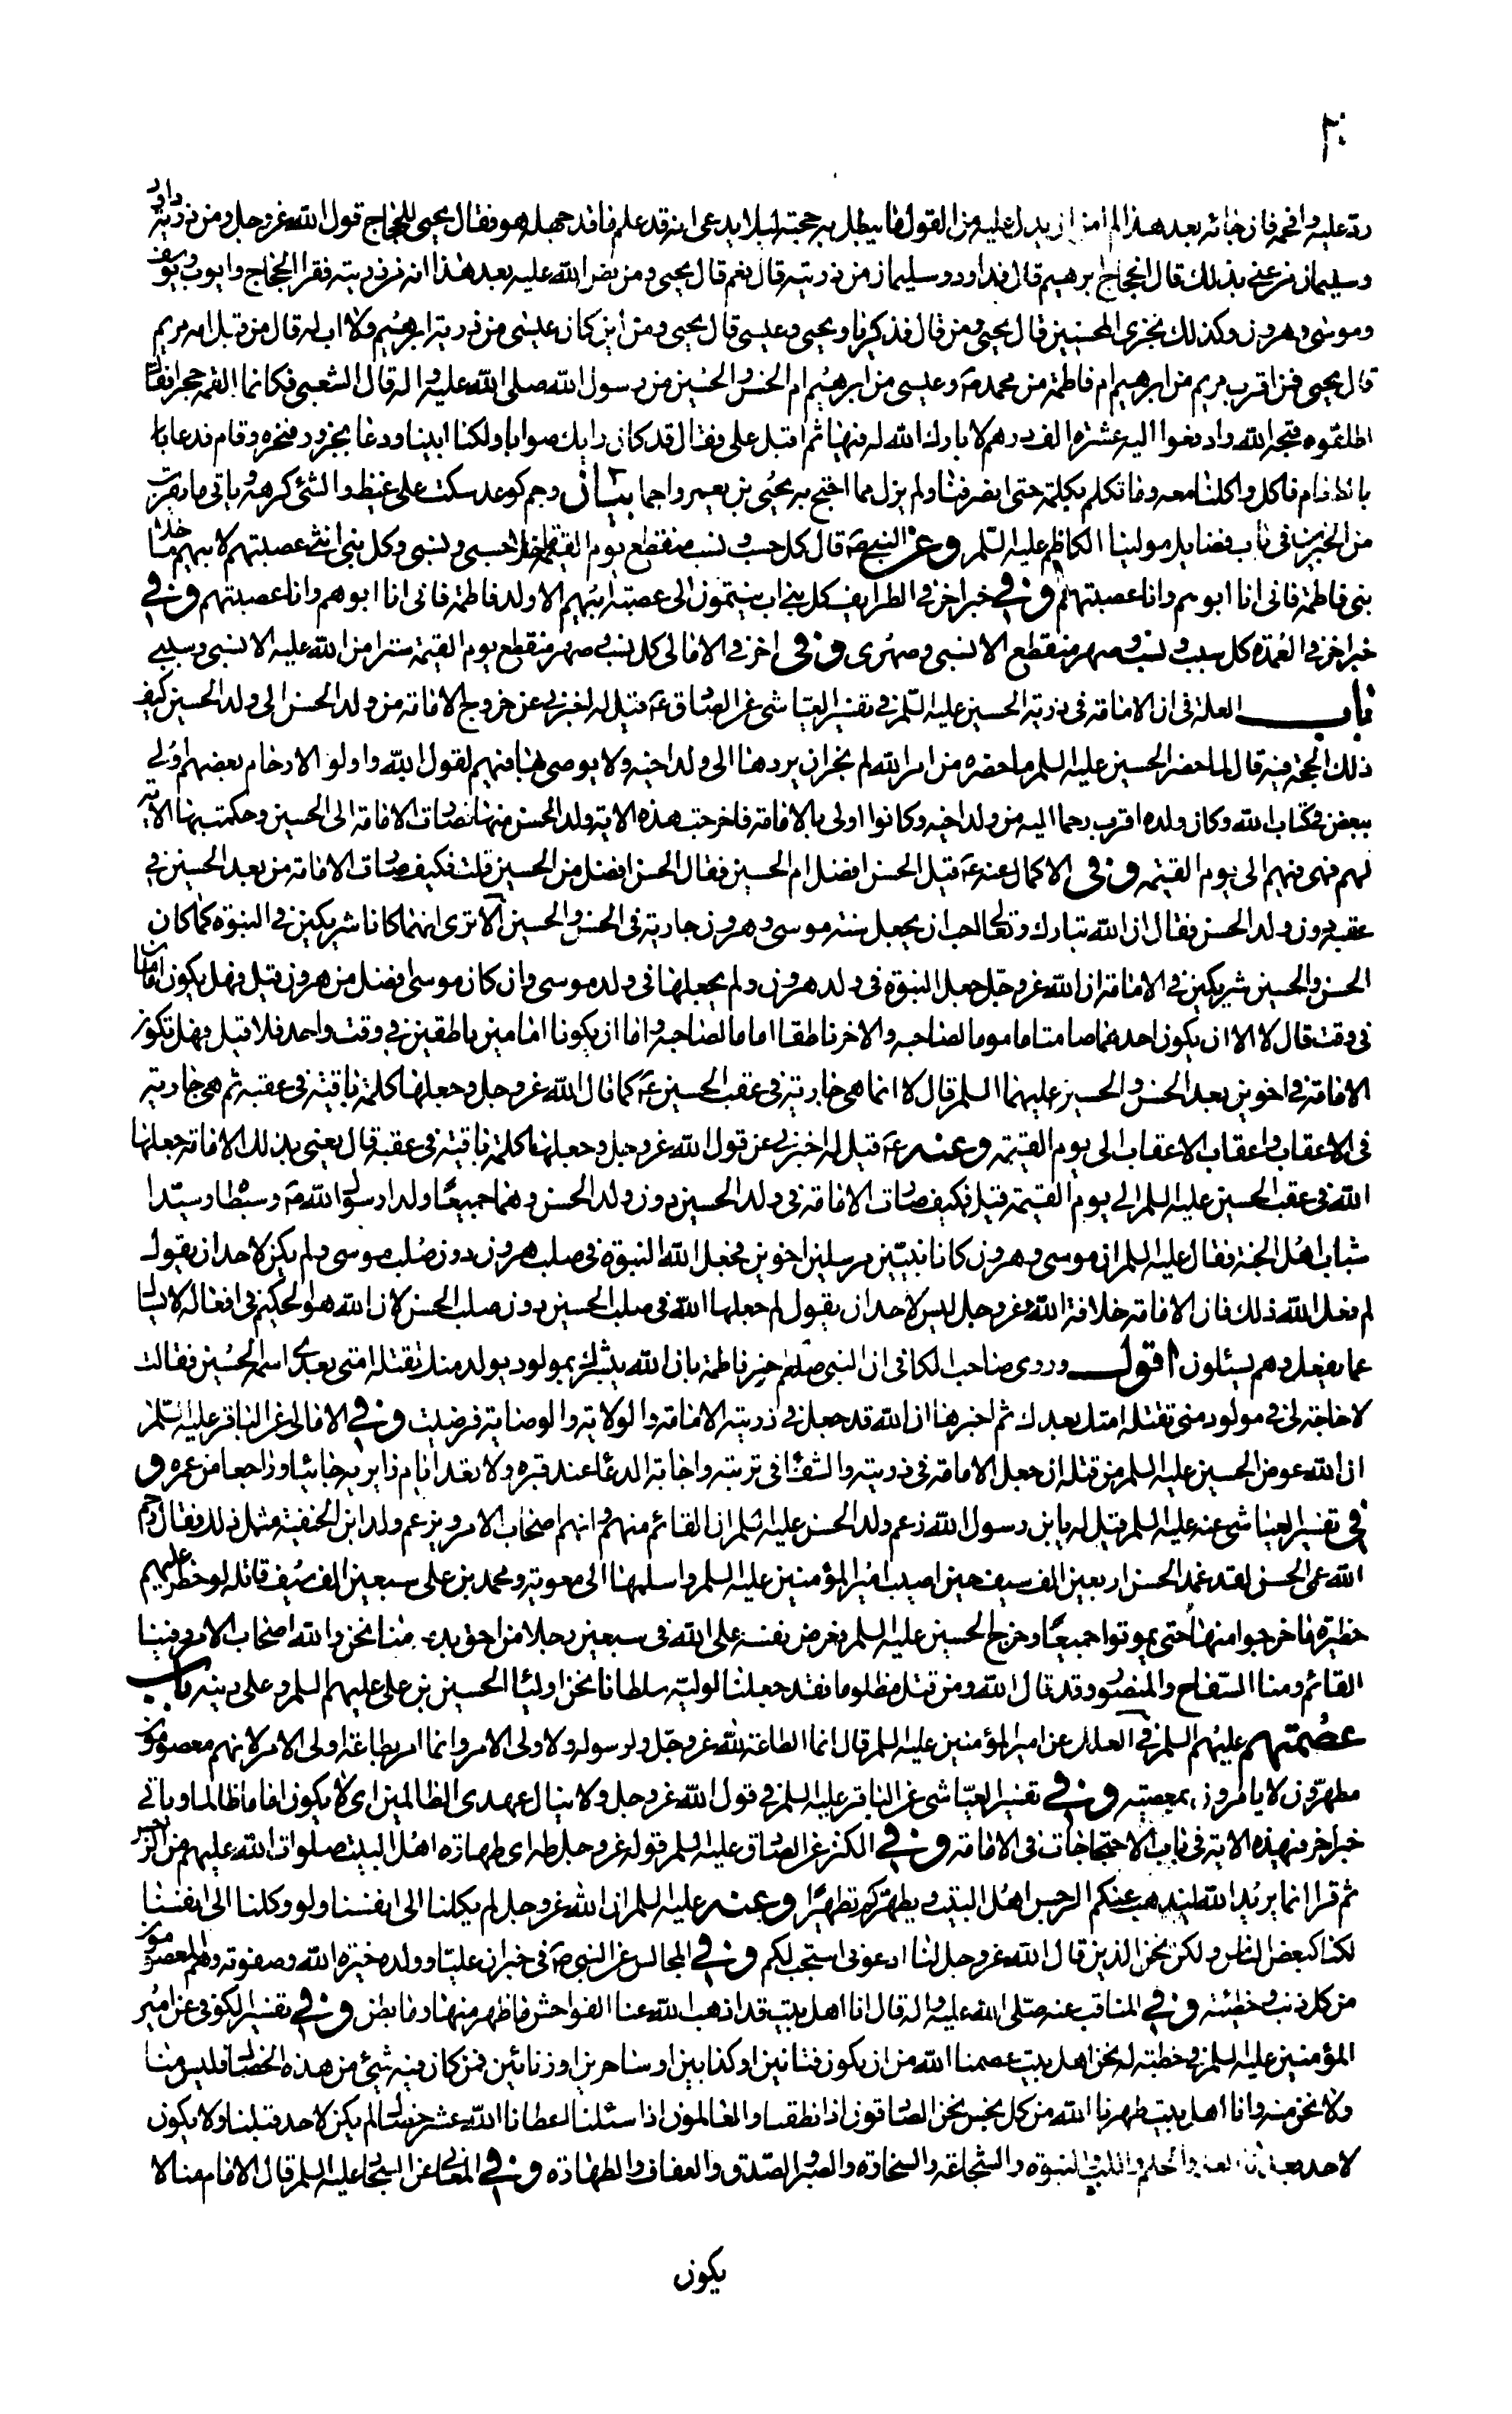 ٢٠
ردّ عليه وافحمه فان جائه بعد هذا لم امن ان يدخل عليه من القول ما يبطل به حجته لئلا يدعى انه قد علم ما قد جهله هو فقال يحيى للحجاج قول الله عز وجل ومن ذريته داود
وسليمان من عنى بذلك قال الحجاج ابرهيم قال فداود وسليمان من ذريته قال نعم قال يحيى ومن نص الله عليه بعد هذا انه من ذريته فقرا الحجاج وايوب ويوسف
وموسى وهرون وكذلك نجزى المحسنين قال يحيى ومن قال وزكريا ويحيى وعيسى قال يحيى ومن اين كان عيسى من ذرية ابرهيم ولا اب له قال من قبل امه مريم
قال يحيى فمن اقرب مريم من ابرهيم ام فاطمة من محمد ص وعيسى من ابرهيم ام الحسن والحسين من رسول الله صلى الله عليه واله قال الشعبى فكانما القمه حجرا فقال
اطلقوه قبحه الله وادفعوا اليه عشرة الف درهم لا بارك الله له فيها ثم اقبل على فقال قد كان رايك صوابا ولكنا ابيناه ودعا بجزور فنحره وقام فدعا با
بالطعام فاكل واكلنا معه وما تكلم بكلمة حتى انصرفنا ولم يزل مما احتج به يحيى بن يعمر واجما بيان وجم كوعد سكت على غيظ والشئ كرهه وياتى ما يقرب
من الخبرين فى باب فضايل مولينا الكاظم عليه السلم وعن النبى ص قال كل حسب ونسب منقطع يوم القيمة ما خلا حسبى ونسبى وكل بنى انثى عصبتهم لابيهم ما خلا
بنى فاطمة فانى انا ابوهم وانا عصبتهم وفي خبر اخر فى الطرايف كل بنى اب ينتمون الى عصبة ابيهم الا ولد فاطمة فانى انا ابوهم وانا عصبتهم وفي
خبر اخر فى العمدة كل سبب ونسب وصهر منقطع الا نسبى وصهرى وفى اخر فى الامالى كل نسب وصهر منقطع يوم القيمة سترا من الله عليه الا نسبى وسببى
باب العلة فى ان الامامة فى ذرية الحسين عليه السلم فى تفسير العياشى عن الصادق ع قيل له اخبرنى عن خروج الامامة من ولد الحسن الى ولد الحسين كيف
ذلك الحجة فيه قال لما حضر الحسين عليه السلم ما حضره من امر الله لم يجز ان يردها الى ولد اخيه ولا يوصى بها فيهم لقول الله واولو الارحام بعضهم اولى
ببعض فى كتاب الله وكان ولده اقرب رحما اليه من ولد اخيه وكانوا اولى بالامامة فاخرجت هذه الاية ولد الحسن منها فصارت الامامة الى الحسين وحكمت بها الاية
لهم فهى فيهم الى يوم القيمة وفى الاكمال عنه ع قيل الحسن افضل ام الحسين فقال الحسن افضل من الحسين قلت فكيف صارت الامامة من بعد الحسين فى
عقبه دون ولد الحسن فقال ان الله تبارك وتعالى احب ان يجعل سنة موسى وهرون جارية فى الحسن والحسين الا ترى انهما كانا شريكين فى النبوة كما كان
الحسن والحسين شريكين فى الامامة ان الله عز وجل جعل النبوة فى ولد هرون ولم يجعلها فى ولد موسى وان كان موسى افضل من هرون قيل فهل يكون امامان
فى وقت قال لا الا ان يكون احدهما صامتا ماموما لصاحبه والاخر ناطقا اماما لصاحبه واما ان يكونا امامين ناطقين فى وقت واحد فلا قيل فهل تكون
الامامة فى اخوين بعد الحسن والحسين عليهما السلم قال لا انما هى جارية فى عقب الحسين ع كما قال الله عز وجل وجعلها كلمة باقية فى عقبه ثم هى جارية
فى الاعقاب واعقاب الاعقاب الى يوم القيمة وعنه ع قيل له اخبرنى عن قول الله عز وجل وجعلها كلمة باقية فى عقبه قال يعنى بذلك الامامة جعلها
الله فى عقب الحسين عليه السلم الى يوم القيمة قيل فكيف صارت الامامة فى ولد الحسين دون ولد الحسن وهما جميعا ولدا رسول الله ص وسبطا وسيّدا
شباب اهل الجنة فقال عليه السلم ان موسى وهرون كانا نبيّين مرسلين اخوين فجعل الله النبوة فى صلب هرون دون صلب موسى ولم يكن لاحد ان يقول
لم فعل الله ذلك فان الامامة خلافة الله عز وجل ليس لاحد ان يقول لم جعلها الله فى صلب الحسين دون صلب الحسن لان الله هو الحكيم فى افعاله لا يسال
عما يفعل وهم يسئلون اقول وروى صاحب الكافى ان النبى صلعم خبر فاطمة بان الله يبشرك بمولود يولد منك تقتله امتى بعدى اسمه الحسين فقالت
لا حاجة لى فى مولود منى تقتله امتك بعدك ثم اخبرها ان الله قد جعل فى ذريته الامامة والولاية والوصاية فرضيت وفي الامالى عن الباقر عليه السلم
ان الله عوض الحسين عليه السلم من قتله ان جعل الامامة فى ذريته والشفاء فى تربته واجابة الدعاء عند قبره ولا يعد ايام زايريه جايئا وراجعا من عمره و
في تفسير العياشى عنه عليه السلم قيل له يابن رسول الله زعم ولد الحسن عليه السلم ان القائم منهم وانهم اصحاب الامر ويزعم ولد ابن الحنفية مثل ذلك فقال رحم
الله عمى الحسن لقد غمد الحسن اربعين الف سيف حين اصيب امير المؤمنين عليه السلم واسلمها الى معوية ومحمد بن على سبعين الف سيف قاتله لو خطر عليهم
خطيرة ما خرجوا منها حتى يموتوا جميعا وخرج الحسين عليه السلم فعرض نفسه على الله فى سبعين رجلا من احق بدمه منا نحن والله اصحاب الامر وفينا
القائم ومنا السفاح والمنصور وقد قال الله ومن قتل مظلوما فقد جعلنا لوليه سلطانا نحن اوليا الحسين بن على عليهم السلم وعلى دينه باب
عصمتهم عليهم السلم فى العلل عن امير المؤمنين عليه السلم قال انما الطاعة لله عز وجل ولرسوله ولاولى الامر وانما امر بطاعة اولى الامر لانهم معصومون
مطهرون لا يامرون بمعصيته وفي تفسير العياشى عن الباقر عليه السلم فى قول الله عز وجل ولا ينال عهدى الظالمين اى لا يكون اماما ظالما وياتى
خبر اخر فى هذه الاية فى باب الاحتجاجات فى الامامة وفي الكنز عن الصادق عليه السلم قوله عز وجل طه اى طهارة اهل البيت صلوات الله عليهم من الرجس
ثم قرا انما يريد الله ليذهب عنكم الرجس اهل البيت ويطهركم تطهيرا وعنه عليه السلم ان الله عز وجل لم يكلنا الى انفسنا ولو وكلنا الى انفسنا
لكنا كبعض الناس ولكن نحن الذين قال الله عز وجل لنا ادعونى استجب لكم وفي المجالس عن النبى ص فى خبر ان عليا وولده خيرة الله وصفوته وهم المعصومون
من كل ذنب وخطيئة وفي المناقب عنه صلى الله عليه واله قال انا اهل بيت قد اذهب الله عنا الفواحش ما ظهر منها وما بطن وفي تفسير الكوفى عن امير
المؤمنين عليه السلم فى خطبة له نحن اهل بيت عصمنا الله من ان يكون فتانين او كذابين او ساحرين او زنائين فمن كان فيه شئ من هذه الخصال فليس منا
ولا نحن منه وانا اهل بيت طهرنا الله من كل نجس نحن الصادقون اذا نطقنا والعالمون اذا سئلنا اعطانا الله عشر خصال لم يكن لاحد قبلنا ولا يكون
لاحد بعدنا العلم والحلم واللب والنبوة والشجاعة والسخاوة والصبر والصدق والعفاف والطهارة وفي المعانى عن السجاد عليه السلم قال الامام منا لا
يكون